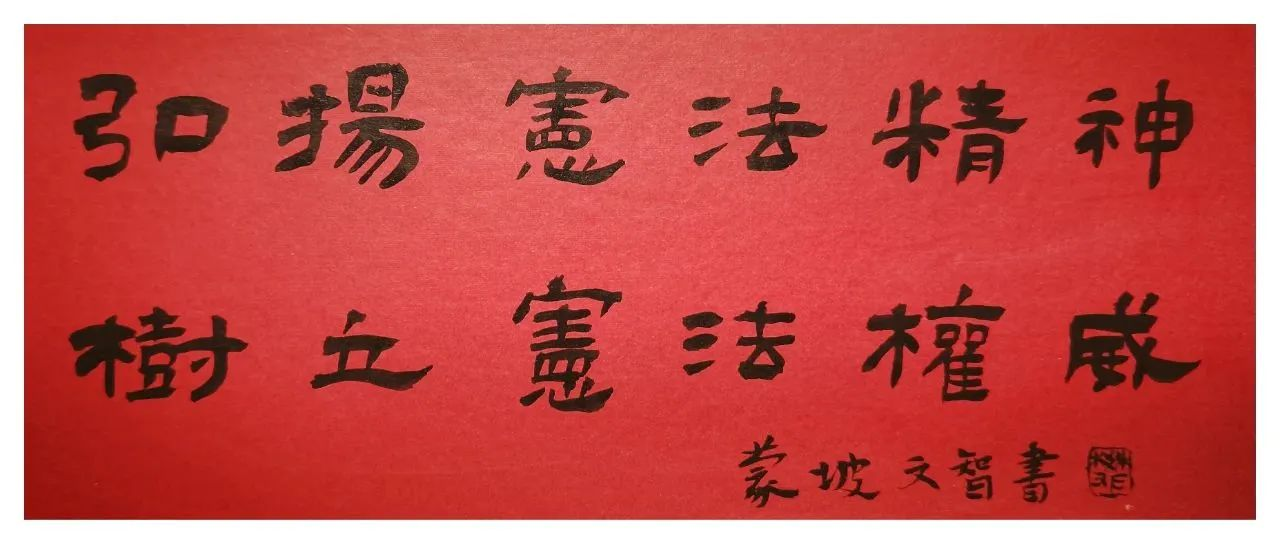 弘揚憲法精神
樹立憲法權威
蒙坡文智書